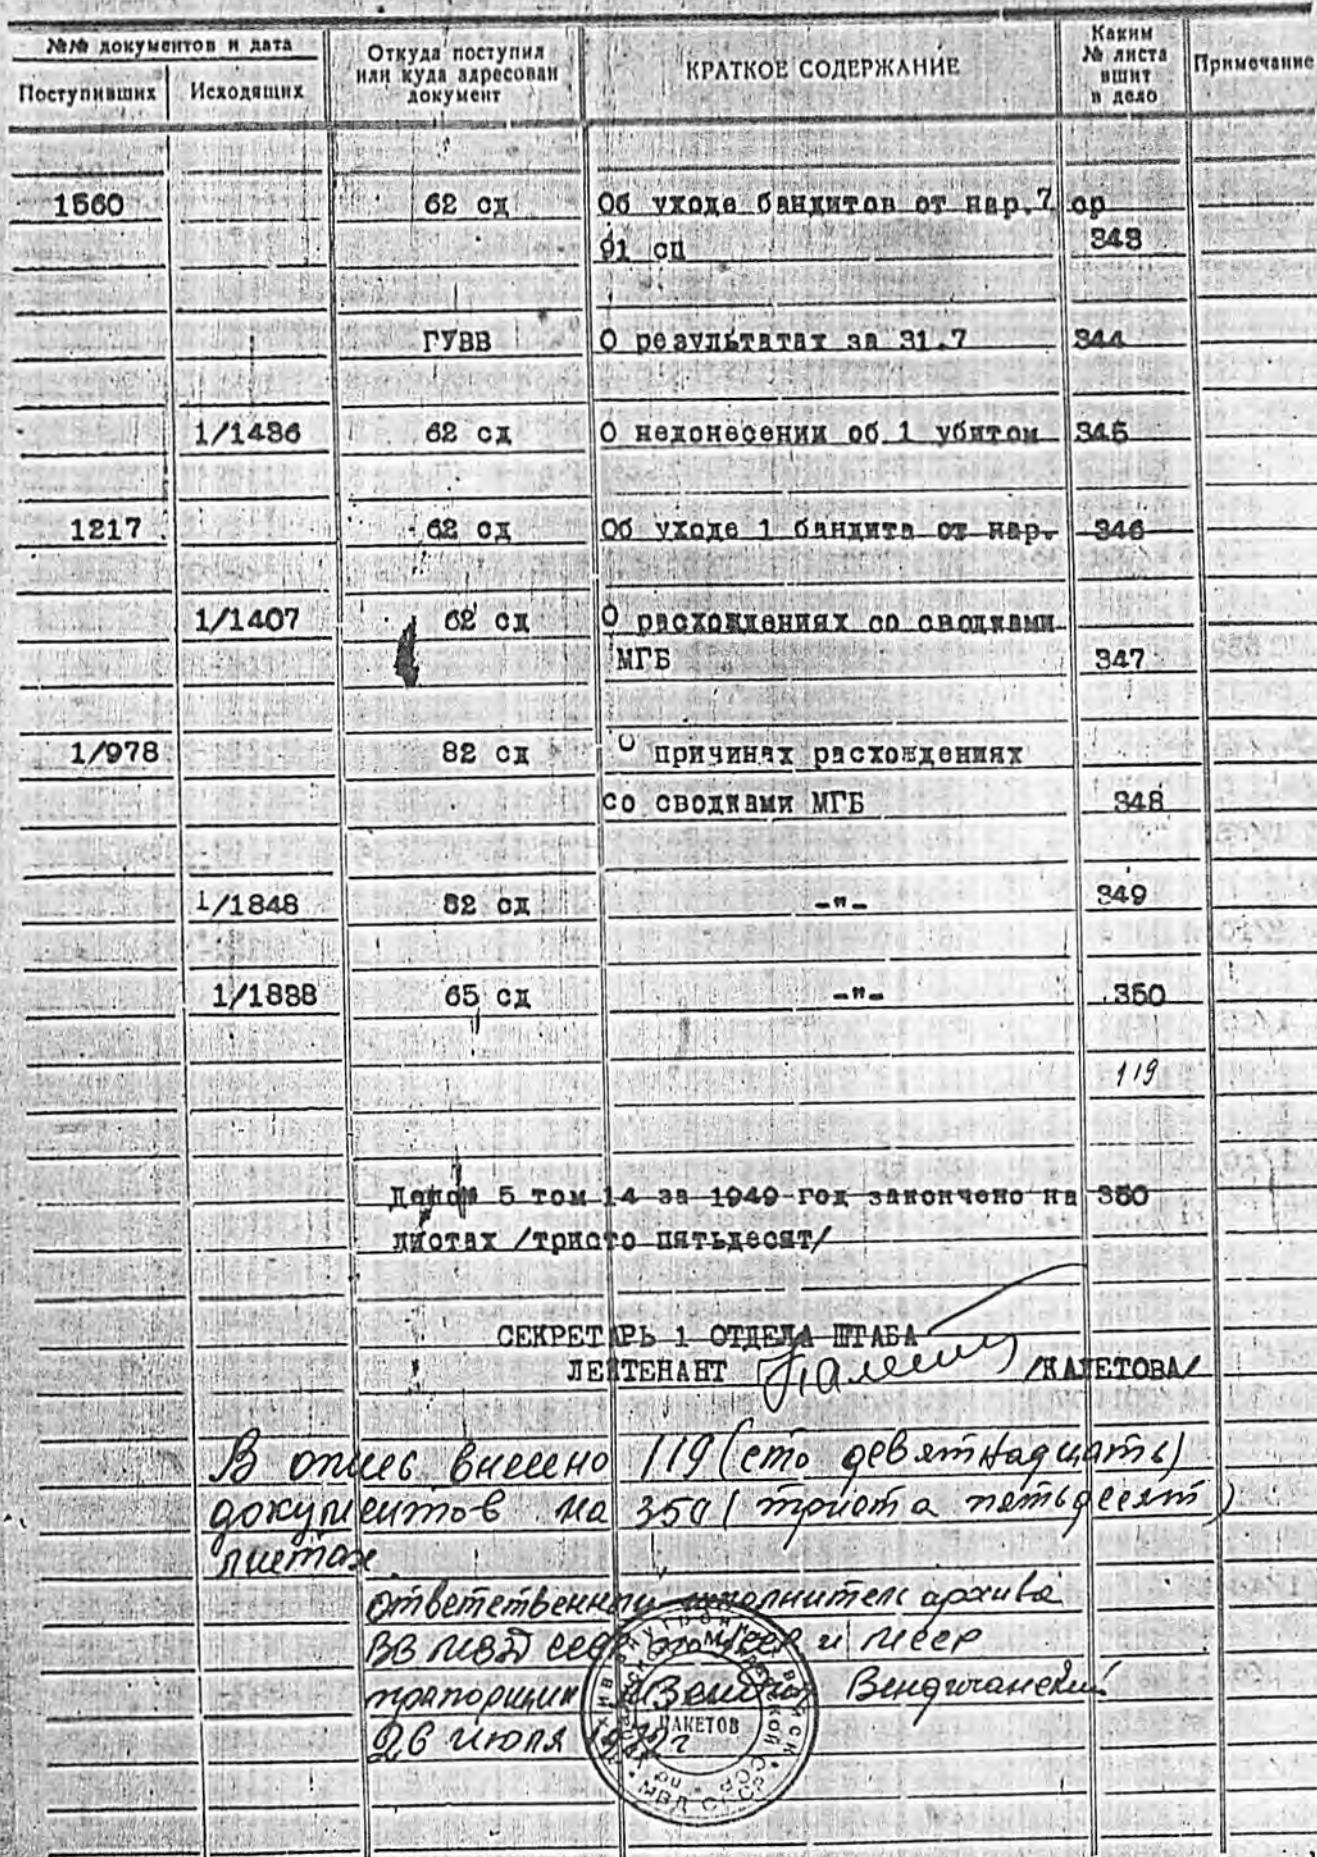 №№ документов и дата
Поступивших
Исходящих
Откуда поступил
или куда адресован
документ
КРАТКОЕ СОДЕРЖАНИЕ
Каким
№ листа
вшит
в дело
Примечание
1560 62 сд Об уходе бандитов от нар.7 ср
91 сп 343
ГУВВ О результатах за 31.7 344
1/1436 62 сд О недонесении об 1 убитом 345
1217 62 сд Об уходе 1 бандита от нар. 346
1/1407 62 сд О расхождениях со сводками
МГБ 347
1/978 82 сд О причинах расхождениях
со сводками МГБ 348
1/1848 82 сд -"- 349
1/1838 65 сд -"- 350
119
5 том 14 за 1949 год закончено на 350
листах /тристо пятьдесят/
СЕКРЕТАРЬ 1 ОТДЕЛА ШТАБА
ЛЕЙТЕНАНТ /КАЛЕТОВА/
В опись внесено 119 (сто девятнадцать)
документов на 350 (триста пятьдесят)
листах
ответственный исполнитель архива
ВВ МВД СССР по УССР и МССР
прапорщик Вендичанский
26 июля
ПАКЕТОВ
МВД СССР